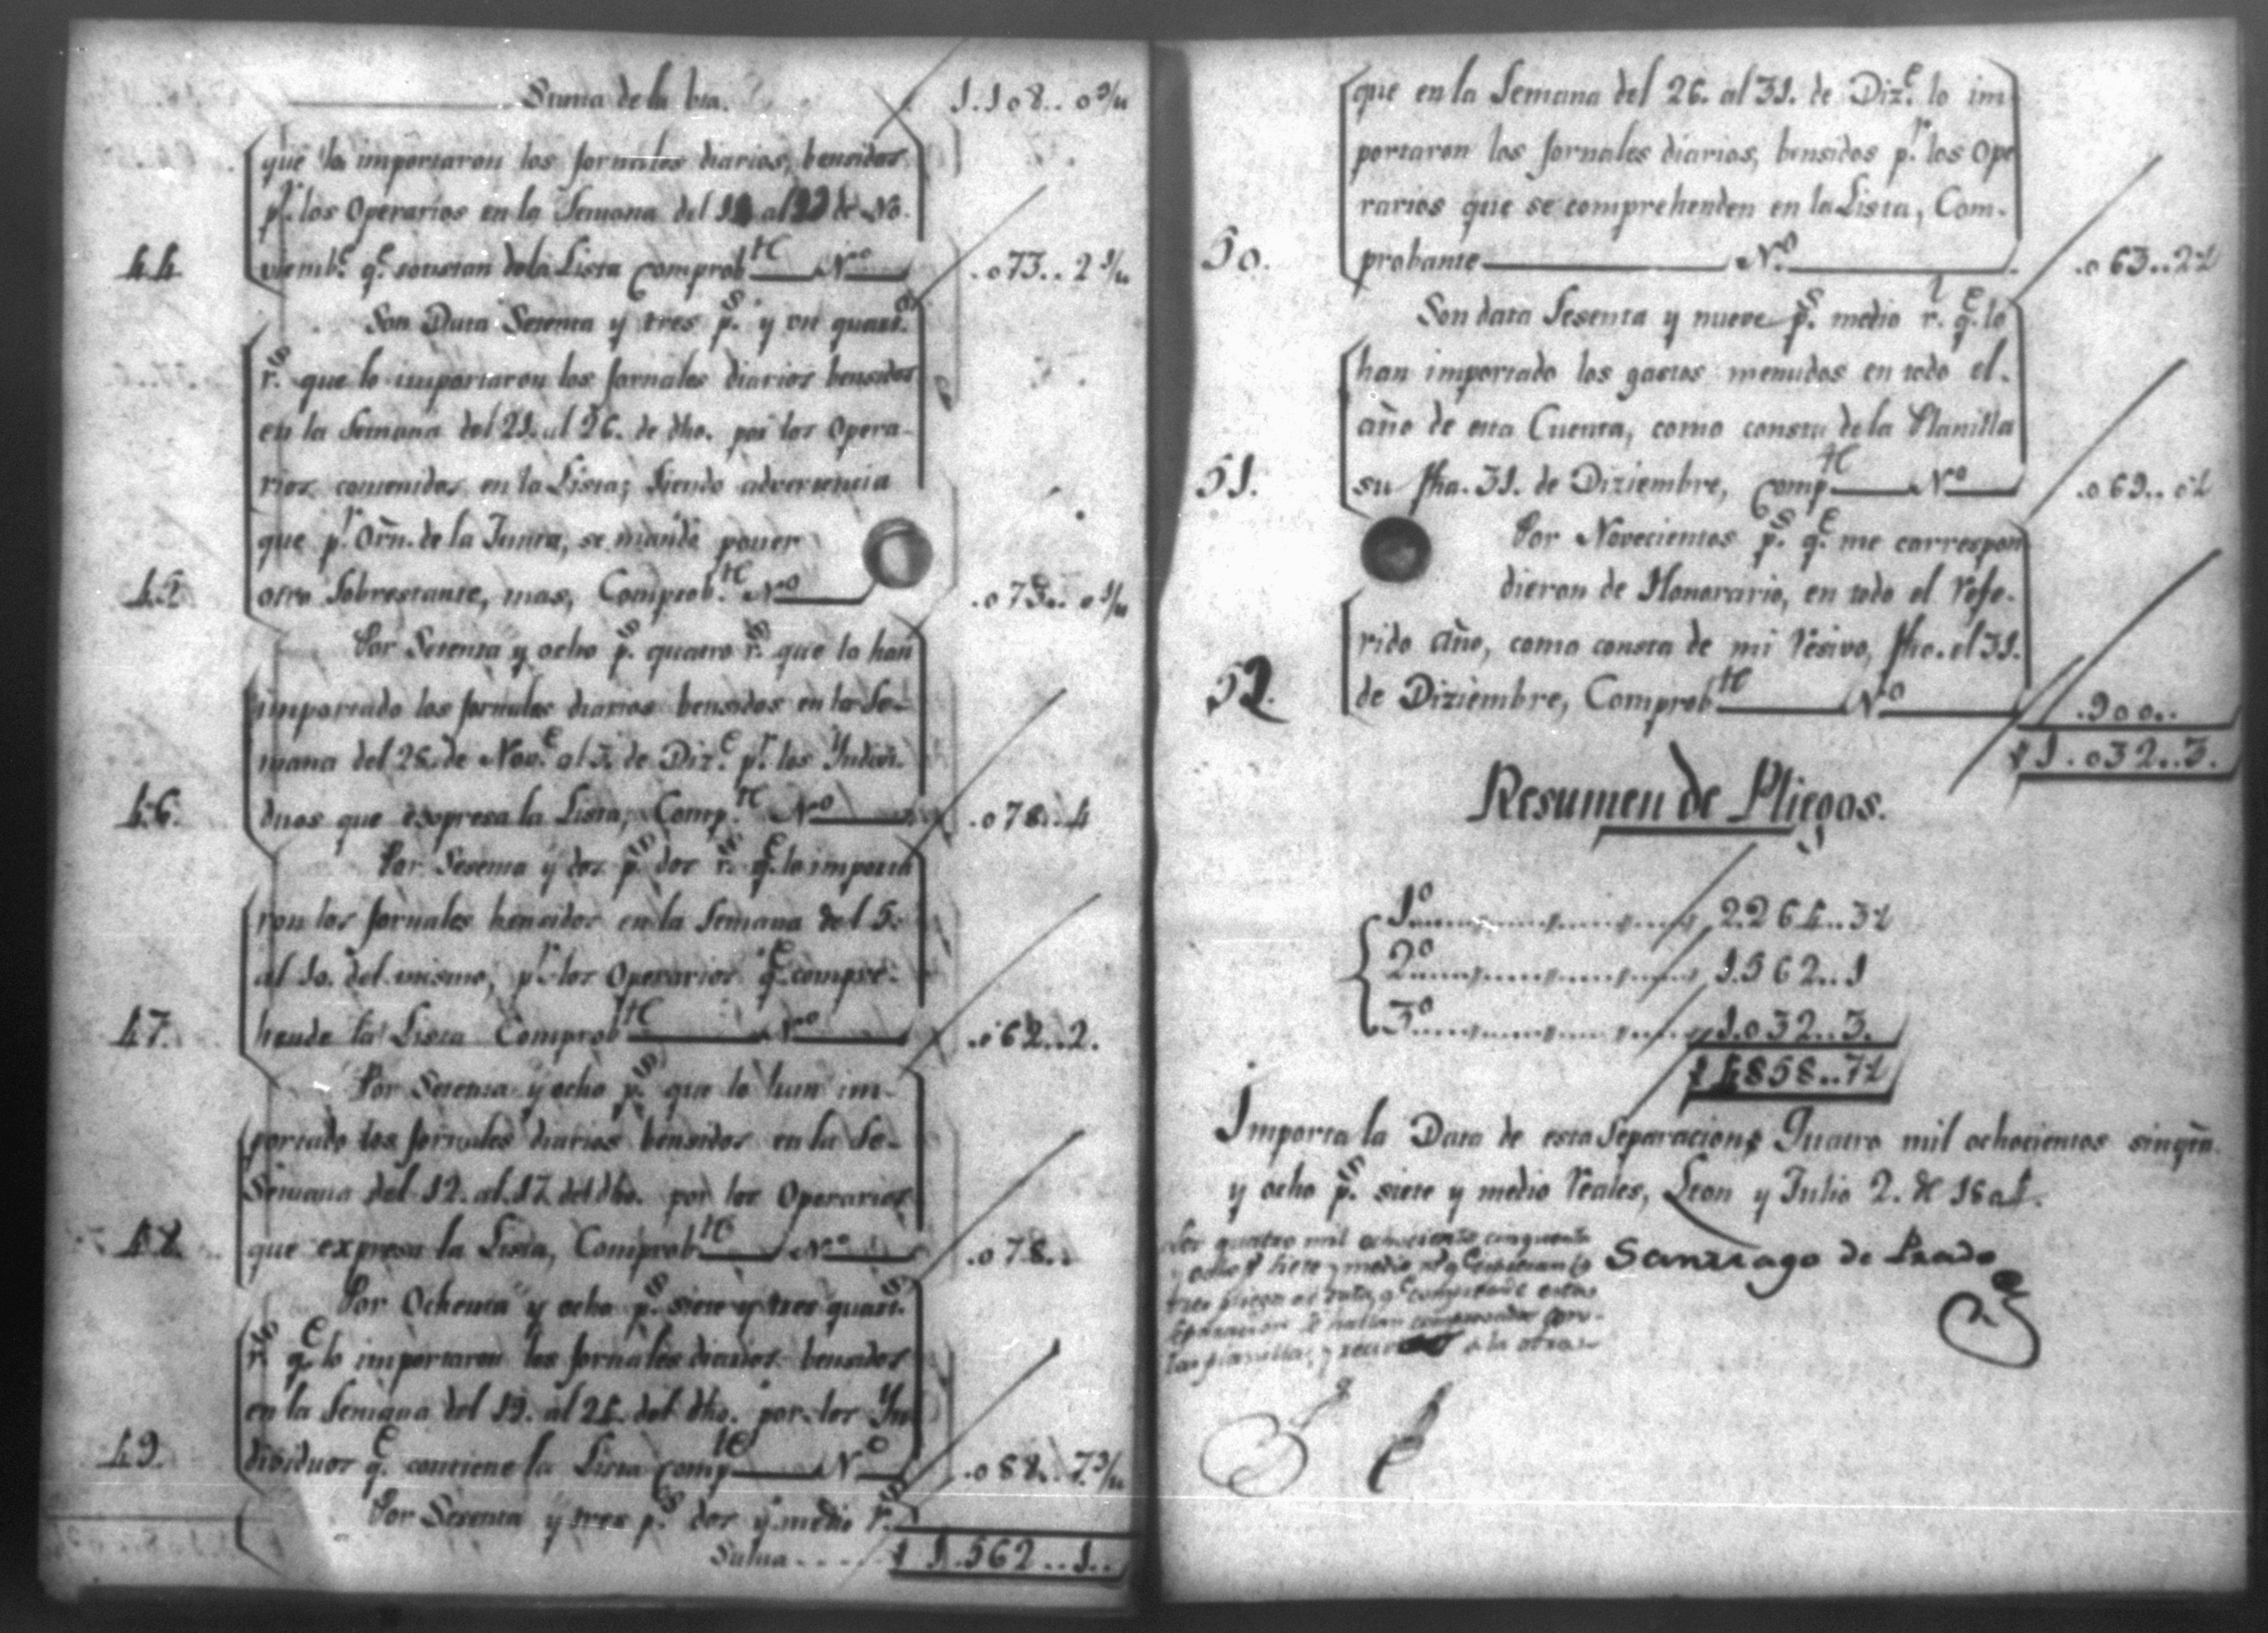 Suma de la bta. 1.108..0 3/4
que lo importaron los Jornales diarios, bensidos
p.r los Operarios en la Semana del al de No-
viemb.e q.e constan de la Lista Comprob.te N.o
44 .073..2 3/4
Son Data Setenta y tres p.s y un quart.o
r.s que lo importaron los Jornales diarios bensidos
en la Semana del 21. al 26. de dho. por los Opera-
rios contenidos en la Lista; siendo advertencia
que p.r Orñ. de la Junta, se mandó poner
otro Sobrestante, mas, Comprob.te N.o
45 .073..0 1/4
Por Setenta y ocho p.s quatro r.s que lo han
importado los Jornales diarios bensidos en la Se-
mana del 28. de Nov.e al 3. de Diz.e p.r los Yndivi-
duos que expresa la Lista, Comp.te N.o
46. .078..4
Por Sesenta y dos p.s dos r.s q.e lo importa
ron los Jornales bensidos en la Semana del 5.
al 10. del mismo, p.r los Operarios q.e compre-
hende la Lista Comprob.te N.o
47. .062..2.
Por Setenta y ocho p.s que lo han im-
portado los Jornales diarios bensidos en la Se-
Semana del 12. al 17. del dho. por los Operarios
que expresa la Lista, Comprob.te N.o
48. .078..
Por Ochenta y ocho p.s siete y tres quart.s
r.s q.e lo importaron los Jornales diarios bensidos
en la Semana del 19. al 24. del dho. por los Yn
dibiduos q.e contiene la Lista Comp.te N.o
49. .088..7 3/4
Por Sesenta y tres p.s dos y medio r.s
Suma.... $ 1.562..1..
que en la Semana del 26. al 31. de Diz.e lo im-
portaron los Jornales diarios, bensidos p.r los Ope
rarios que se comprehenden en la Lista, Com-
probante N.o
50. .063..2½
Son data Sesenta y nueve p.s medio r.l q.e lo
han importado los gastos menudos en todo el
año de esta Cuenta, como consta de la Planilla
su fha. 31. de Diziembre, Comp.te N.o
51. .069..0½
Por Novecientos p.s q.e me correspon
dieron de Honorario, en todo el Refe-
rido año, como consta de mi Resivo, fho. el 31.
de Diziembre, Comprob.te N.o
52. .900..
$ 1.032..3.
Resumen de Pliegos.
1.o 2264..3½
2.o 1.562..1
3.o 1.032..3.
$ 4858..7½
Importa la Data de esta Separacion, Quatro mil ochocientos sinqta.
y ocho p.s siete y medio Reales, Leon y Julio 2. de 1804.
Santiago de Prado
Los quatro mil ochociento cinquenta
y ocho p.s siete y medio r.s q.e
tres pliegos de Data, q.e comprende esta
Separacion se hallan comprovados con
las planillas, y a la otra